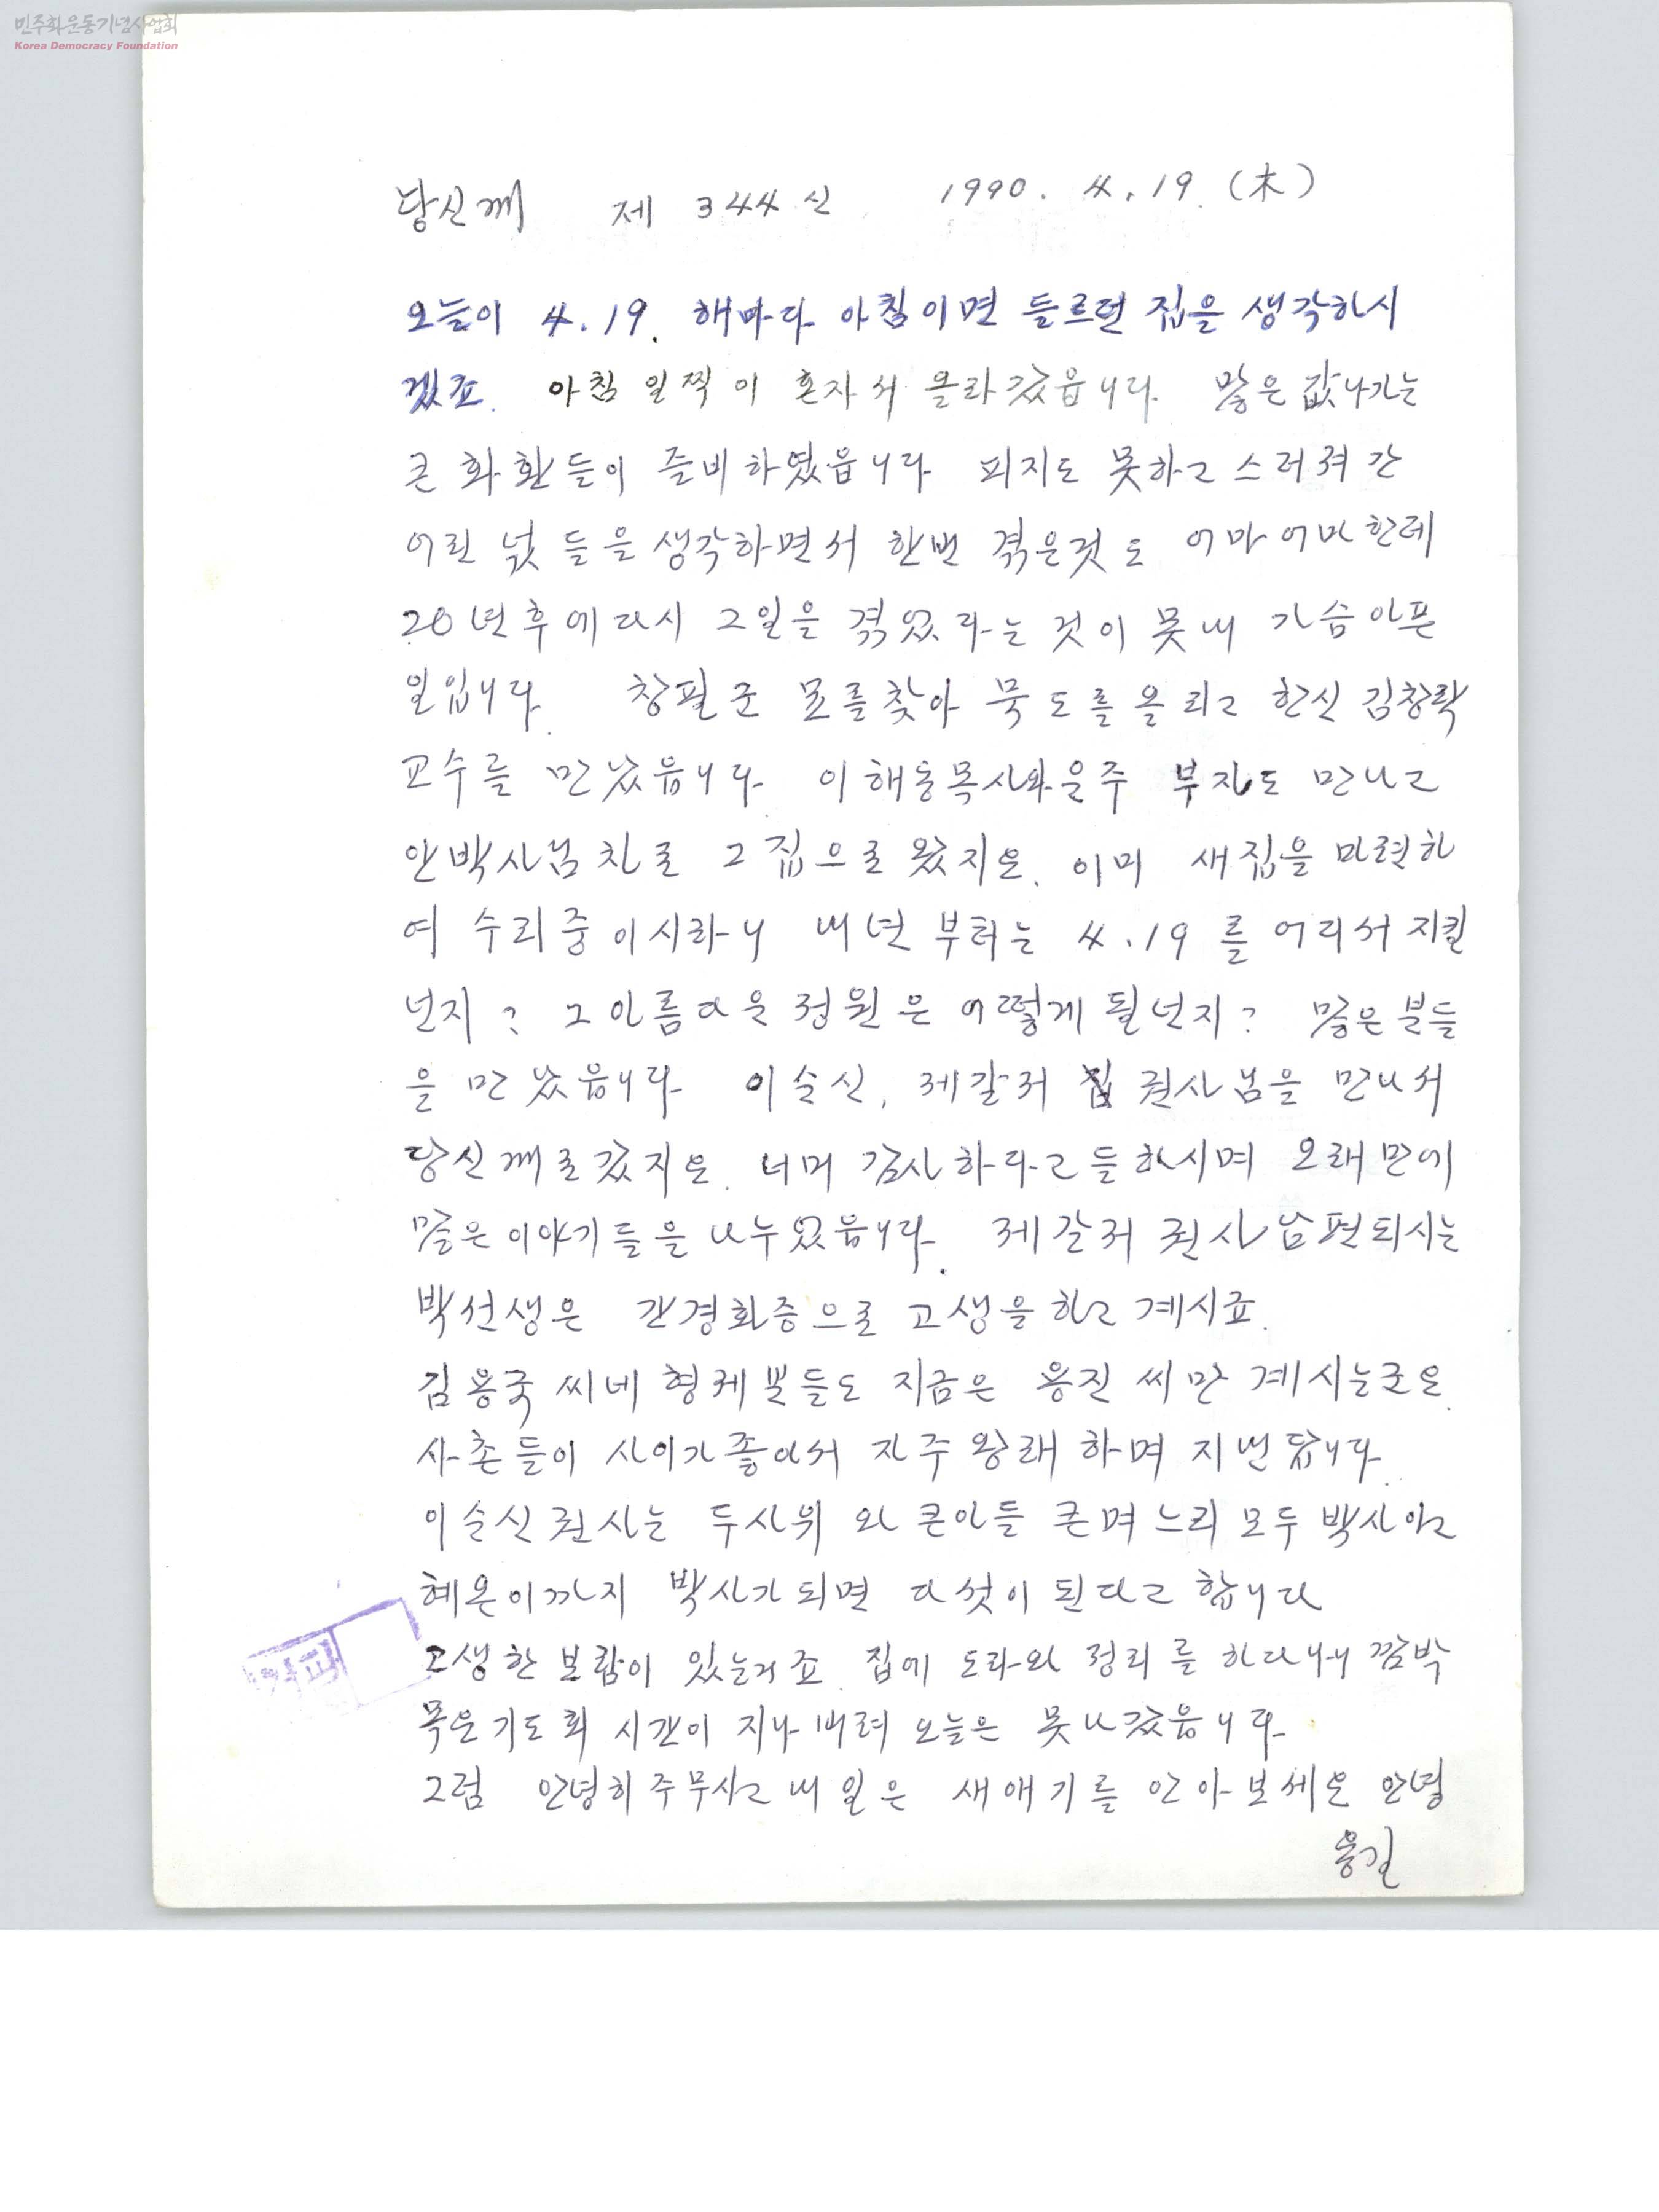 민주화운동기념사업회
Korea Democracy Foundation
당신께 제 344 신 1990. 4. 19. (木)
오늘이 4. 19. 해마다 아침이면 들르던 집을 생각하시
겠죠. 아침 일찍이 혼자서 올라갔읍니다. 많은 값나가는
큰 화환들이 즐비하였읍니다 피지도 못하고 스러져 간
어린 넋들을 생각하면서 한번 겪은것도 어마어마한데
20년후에 다시 그일을 겪었다는 것이 못내 가슴아픈
일입니다. 창필군 묘를 찾아 묵도를 올리고 한신 김창락
교수를 만났읍니다 이해동목사와 운주 부자도 만나고
안박사님 차로 그 집으로 왔지요. 이미 새집을 마련하
여 수리중이시라니 내년부터는 4.19를 어디서 지킬
넌지? 그 아름다운 정원은 어떻게 될넌지? 많은 분들
을 만났읍니다 이순신, 제갈저 권사님을 만나서
당신께로 갔지요. 너머 감사하다고들 하시며 오래만에
많은 이야기들을 나누었읍니다. 제갈저 권사 남편되시는
박선생은 간경화증으로 고생을 하고 계시죠.
김용국 씨네 형제분들도 지금은 용진 씨만 계시는군요.
사촌들이 사이가 좋아서 자주 왕래하며 지낸답니다.
이순신 권사는 두사위와 큰아들 큰며느리 모두 박사이고
혜은이까지 박사가 되면 다섯이 된다고 합니다
고생한 보람이 있는거죠. 집에 도라와 정리를 하다니 깜박
목요기도회 시간이 지나버려 오늘은 못나갔읍니다.
그럼 안녕히 주무시고 내일은 새애기를 안아보세요 안녕
용길